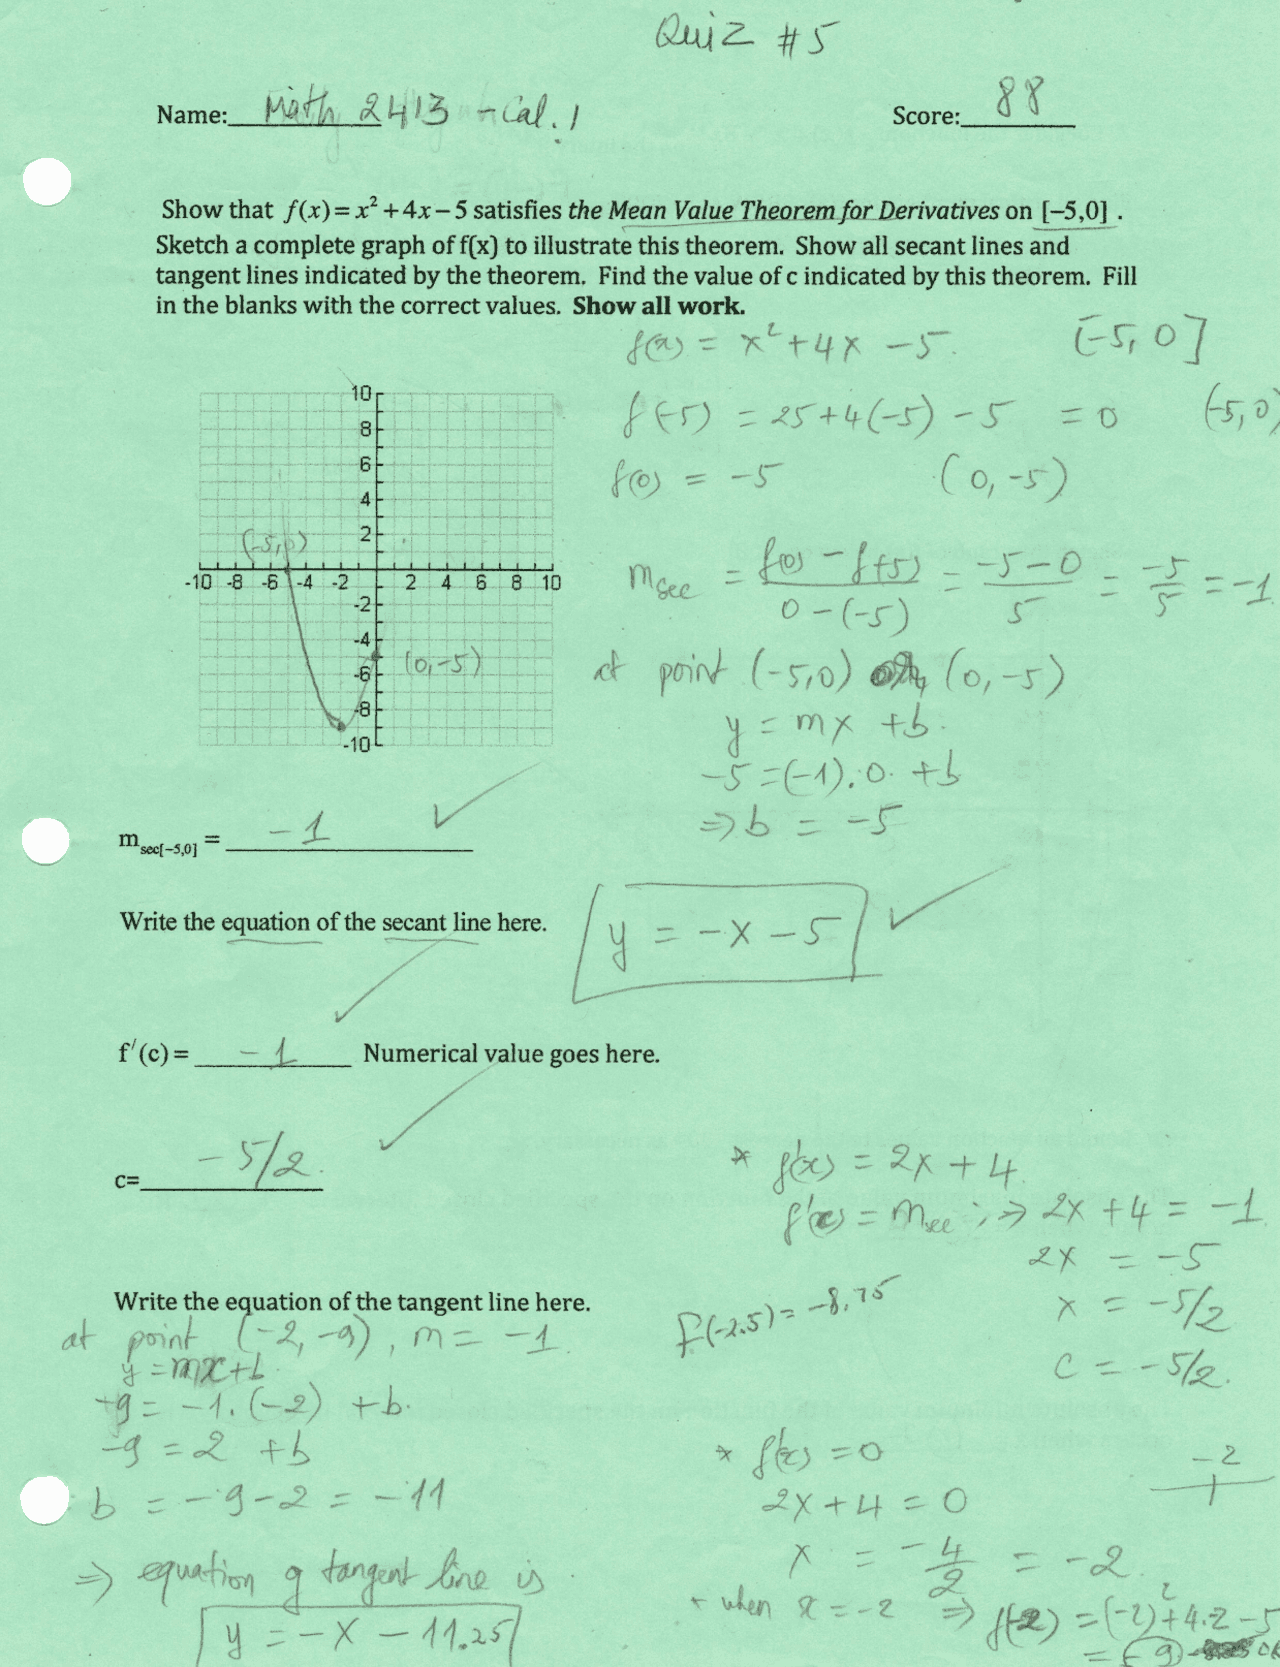 Quiz #5
Name: Math 2413 - Cal. 1 Score: 88
Show that f(x)=x²+4x−5 satisfies the Mean Value Theorem for Derivatives on [−5,0] .
Sketch a complete graph of f(x) to illustrate this theorem. Show all secant lines and
tangent lines indicated by the theorem. Find the value of c indicated by this theorem. Fill
in the blanks with the correct values. Show all work.
f(x) = x²+4x −5. [-5, 0]
f(-5) = 25+4(-5) - 5 = 0 (-5,0)
f(0) = -5 (0,-5)
10
8
6
4
2
(-5,0)
-10 -8 -6 -4 -2 2 4 6 8 10
-2
-4
(0,-5)
-6
-8
-10
m sec = f(0) - f(-5) / 0-(-5) = -5-0 / 5 = -5/5 = -1
at point (-5,0) (0,-5)
y = mx +b.
-5 =(-1).0. +b
⇒ b = -5
m sec[−5,0] = -1
Write the equation of the secant line here. y = -x -5
f′(c) = -1 Numerical value goes here.
c= -5/2.
* f'(x) = 2x + 4
f'(c) = m sec ; ⇒ 2x +4 = -1
2x = -5
x = -5/2
c = -5/2.
Write the equation of the tangent line here.
f(-2.5) = -8.75
at point (-2, -9), m = -1
y = mx+b
-9 = -1.(-2) +b.
-9 = 2 +b
b = -9-2 = -11
⇒ equation of tangent line is
y = -x - 11.25
* f'(x) = 0
2x+4 = 0
x = -4/2 = -2.
-2
+ when x = -2 ⇒ f(-2) = (-2)²+4.-2 -5
= (-9)